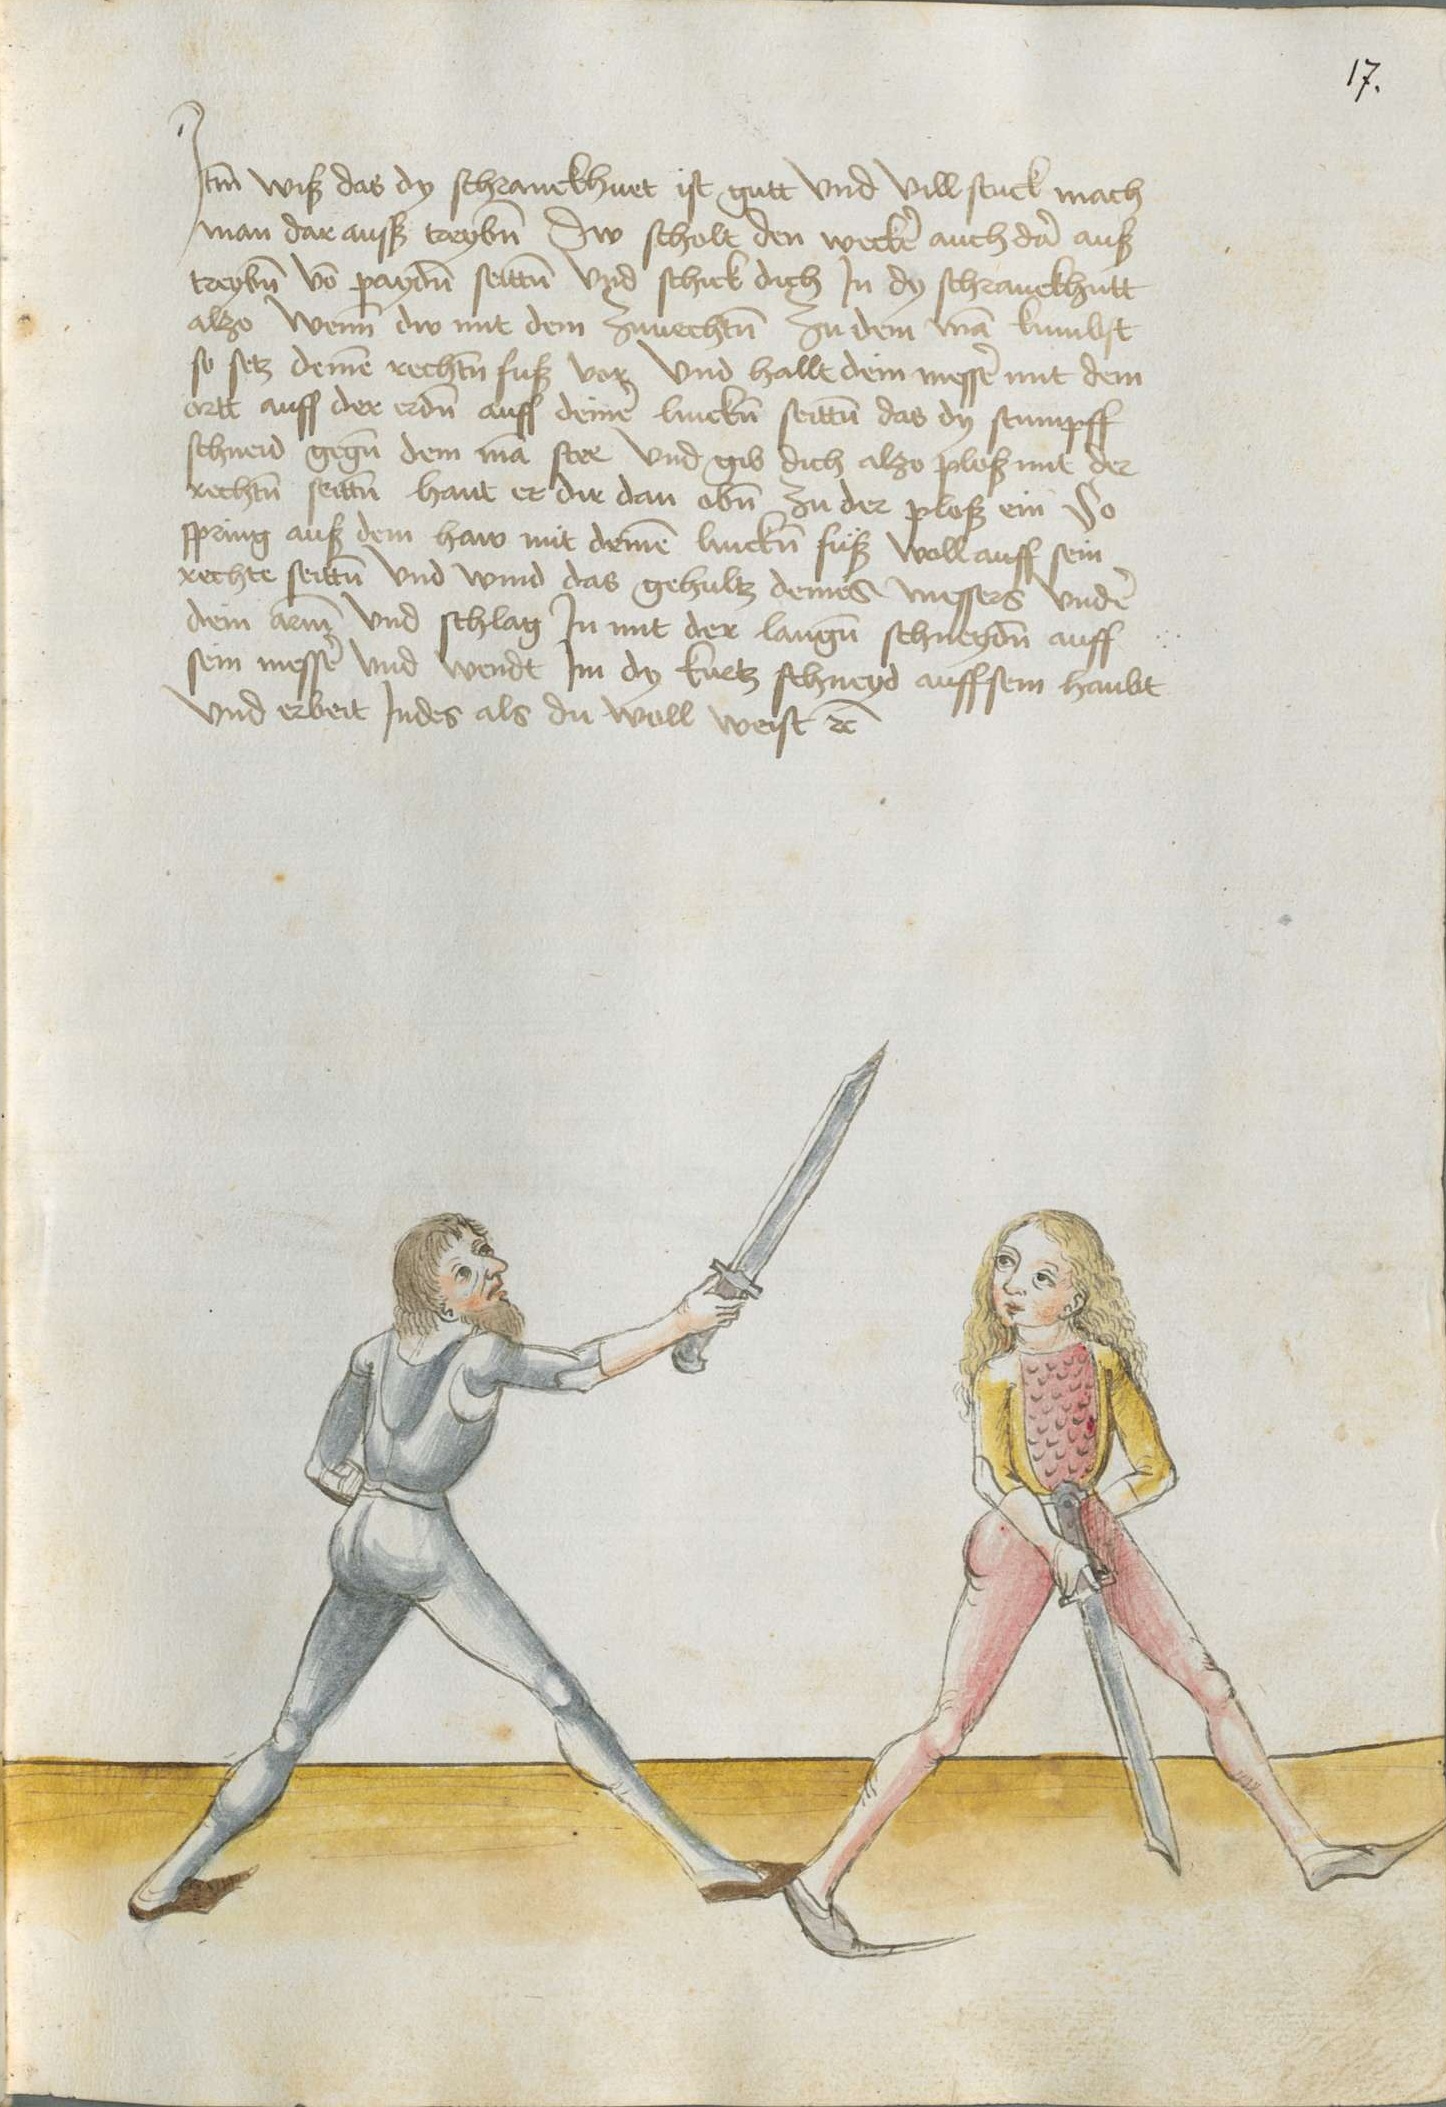 17.
Itm̄ wiß das dy schranckhuet ist gutt vnd vill stuck mach
man dar auß treybn̄ Dw scholt den wecke᷑ auch da᷑ auß
treybn̄ vō paydn̄ seittn̄ vnd schick dich In dy schranckhutt
alzo Wenn̄ dw mit dem Zuuechtn̄ Zu dem mā kumbst
so setz deinē rechtn̄ fuß vor vnd hallt dein messe᷑ mit dem
ortt auff der erdn̄ auff deine᷑ linckn̄ seittn̄ das dy stumpff
schneid gegn̄ dem mā stee vnd gib dich alzo ploß mit der
rechtn̄ seittn̄ haut er dir dan obn̄ Zu der ploß ein So
spring auß dem haw mit deinē linckn̄ fuß woll auff sein
rechte seittn̄ vnd wind das gehultz deines messers vnde᷑
dein arm̄ vnd schlag In mit der langn̄ schneydn̄ auff
sein messe᷑ vnd wendt Im dy kurtz schneyd auff sein haubt
vnd erbeit Indes als du woll weist ꝛc̄